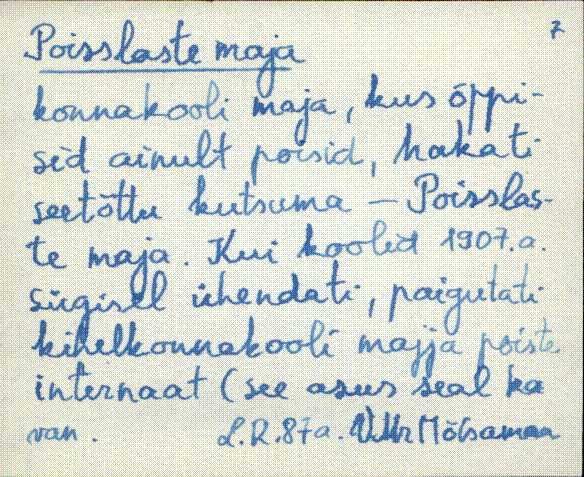 7
Poisslaste maja
konnakooli maja, kus õppi-
sid ainult poisid, hakati
seetõttu kutsuma – Poisslas-
te maja. Kui koolid 1907.a.
sügisel ühendati, paigutati
kihelkonnakooli majja poiste
internaat (see asus seal ka
van. L.R.87a.